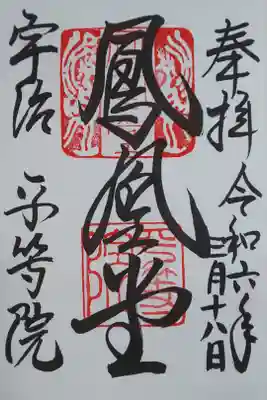 奉拝
令和六年
三月十八日
鳳凰堂
宇治
平等院